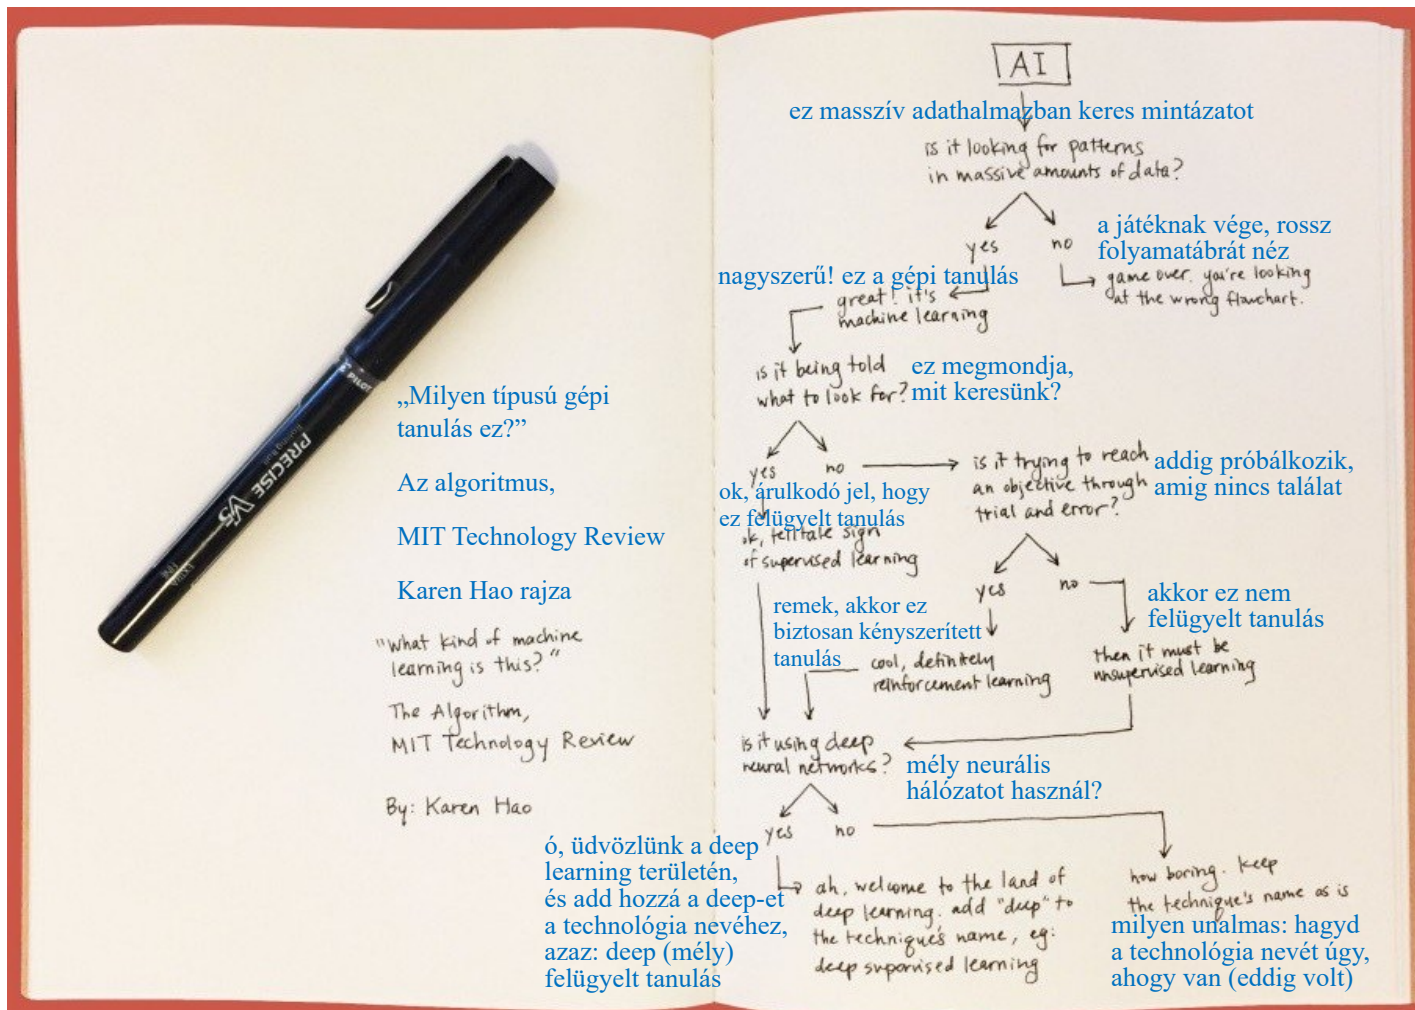 PILOT
Rolling Ball
PRECISE V5
EXTRA
FINE
„Milyen típusú gépi
tanulás ez?”
Az algoritmus,
MIT Technology Review
Karen Hao rajza
"what kind of machine
learning is this?"
The Algorithm,
MIT Technology Review
By: Karen Hao
AI
ez masszív adathalmazban keres mintázatot
is it looking for patterns
in massive amounts of data?
yes
no
a játéknak vége, rossz
folyamatábrát néz
game over. you're looking
at the wrong flowchart.
nagyszerű! ez a gépi tanulás
great! it's
machine learning
is it being told
what to look for?
ez megmondja,
mit keresünk?
yes
no
is it trying to reach
an objective through
trial and error?
addig próbálkozik,
amig nincs találat
ok, árulkodó jel, hogy
ez felügyelt tanulás
ok, telltale sign
of supervised learning
yes
no
akkor ez nem
felügyelt tanulás
then it must be
unsupervised learning
remek, akkor ez
biztosan kényszerített
tanulás
cool, definitely
reinforcement learning
is it using deep
neural networks?
mély neurális
hálózatot használ?
yes
no
ó, üdvözlünk a deep
learning területén,
és add hozzá a deep-et
a technológia nevéhez,
azaz: deep (mély)
felügyelt tanulás
ah, welcome to the land of
deep learning. add "deep" to
the technique's name, eg:
deep supervised learning
how boring. keep
the technique's name as is
milyen unalmas: hagyd
a technológia nevét úgy,
ahogy van (eddig volt)